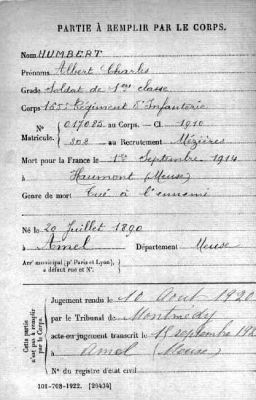 PARTIE À REMPLIR PAR LE CORPS.
Nom HUMBERT
Prénoms Albert Charles
Grade Soldat de 1ère classe
Corps 165e Régiment d'Infanterie
N° 017085 au Corps. — Cl 1910
Matricule. 808 au Recrutement Mézières
Mort pour la France le 1er Septembre 1914
à Haumont (Meuse)
Genre de mort Tué à l'ennemi
Né le 20 Juillet 1890
à Amel Département Meuse
Arrt municipal (pr Paris et Lyon),
à défaut rue et N°.
Cette partie
n'est pas à remplir
par le Corps.
Jugement rendu le 10 Août 1920
par le Tribunal de Montmédy
acte ou jugement transcrit le 15 septembre 1920
à Amel (Meuse)
N° du registre d'état civil
101-708-1922. [26434]